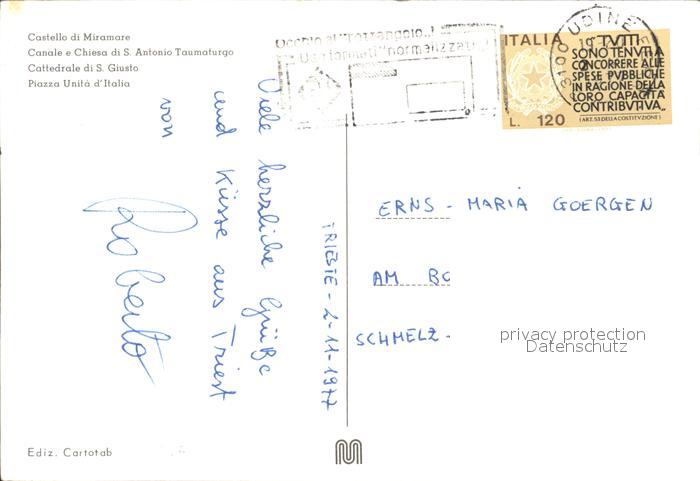 Castello di Miramare
Canale e Chiesa di S. Antonio Taumaturgo
Cattedrale di S. Giusto
Piazza Unità d'Italia
Viele herzliche Grüße
und Küsse aus Triest
von
Roberto
TRIESTE - 2-11-1977
Ediz. Cartotab
Usa formati "normalizzati"
UDINE
ITALIA
L. 120
TVTTI
SONO TENVTI A
CONCORRERE ALLE
SPESE PVBBLICHE
IN RAGIONE DELLA
LORO CAPACITÀ
CONTRIBVTIVA
(ART. 53 DELLA COSTITVZIONE)
ERNS - MARIA GOERGEN
AM BC
SCHMELZ.
privacy protection
Datenschutz